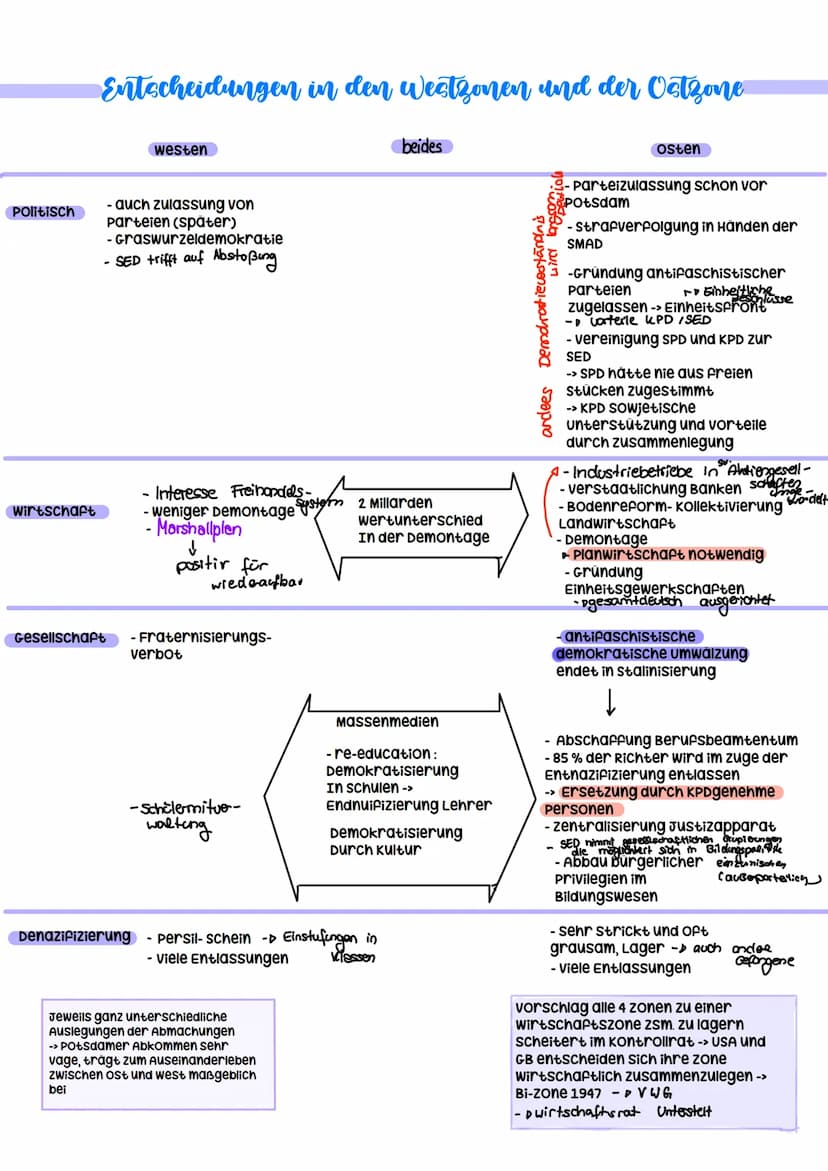 Entscheidungen in den Westzonen und der Ostzone
westen
beides
osten
Politisch
- auch zulassung von
Parteien (später)
- Graswurzeldemokratie
- SED trifft auf Abstoßung
- Parteizulassung schon vor
Potsdam
- Strafverfolgung in Händen der
SMAD
-Gründung antifaschistischer
Parteien
-> Einheitliche
Beschlüsse
zugelassen -> Einheitsfront
-> Vorteile KPD / SED
- vereinigung SPD und KPD zur
SED
-> SPD hätte nie aus freien
stücken zugestimmt
-> KPD sowjetische
unterstützung und vorteile
durch zusammenlegung
Demokratieverständnis
wird
wirtschaft
- Interesse Freihandels-
system
- weniger Demontage
- Marshallplan
↓
positiv für
2 Millarden
wertunterschied
In der Demontage
- Industriebetriebe in Aktiengesell-
schaften
- verstaatlichung Banken
umge-
wandelt
- Bodenreform- Kollektivierung
Landwirtschaft
- Demontage
Planwirtschaft notwendig
- Gründung
Einheitsgewerkschaften
-> gesamtdeutsch ausgerichtet
Gesellschaft
- Fraternisierungs-
verbot
-antifaschistische
demokratische umwälzung
endet in Stalinisierung
↓
Massenmedien
- re-education :
Demokratisierung
In schulen ->
Endnuifizierung Lehrer
Demokratisierung
Durch Kultur
- Abschaffung Berufsbeamtentum
- 85 % der Richter wird im zuge der
Entnazifizierung entlassen
-> Ersetzung durch KPDgenehme
Personen
- zentralisierung Justizapparat
- SED nimmt gesellschaftlichen
die sich in Bildungspolitik
einzumischen
(außerparteilich)
- Abbau bürgerlicher
Privilegien im
Bildungswesen
Denazifizierung
- Persil- schein -> Einstufungen in
Klassen
- viele Entlassungen
- sehr strickt und oft
grausam, Lager -> auch andere
Gefangene
- viele Entlassungen
Jeweils ganz unterschiedliche
Auslegungen der Abmachungen
-> Potsdamer Abkommen sehr
vage, trägt zum Auseinanderleben
zwischen Ost und west maßgeblich
bei
vorschlag alle 4 zonen zu einer
wirtschaftszone zsm. zu lagern
scheitert im Kontrollrat -> USA und
GB entscheiden sich ihre zone
wirtschaftlich zusammenzulegen ->
Bi-zone 1947 -> VWG
-> wirtschaftsrat unterstellt